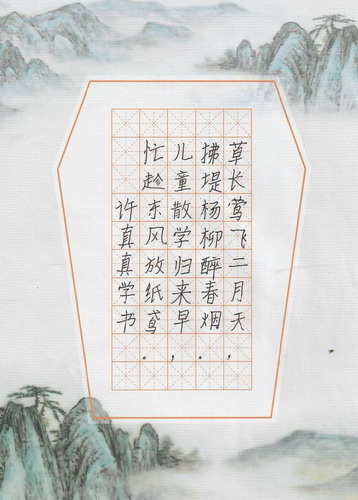 草长莺飞二月天，
拂堤杨柳醉春烟。
儿童散学归来早，
忙趁东风放纸鸢。
许真真学书